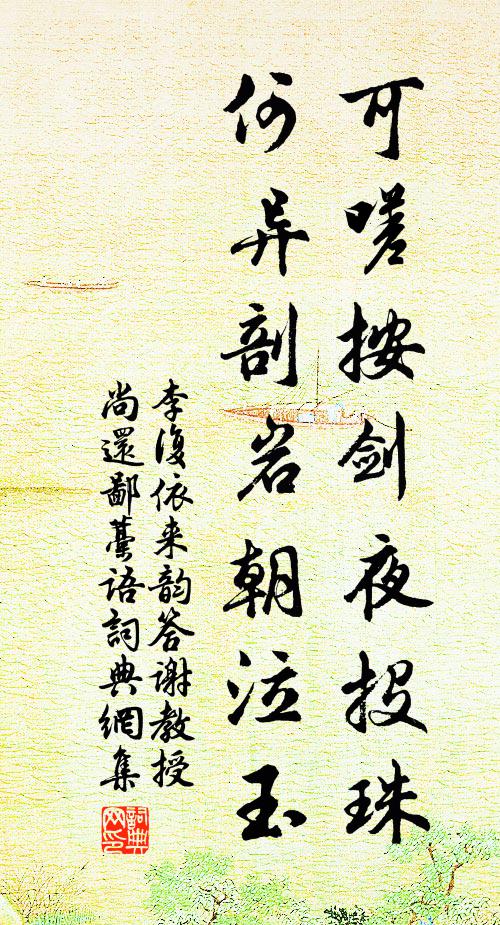 可嗟按剑夜投珠
何异剖岩朝泣玉
李復依来韵答谢教授
尚還鄙藁语詞典網集
詞典网印